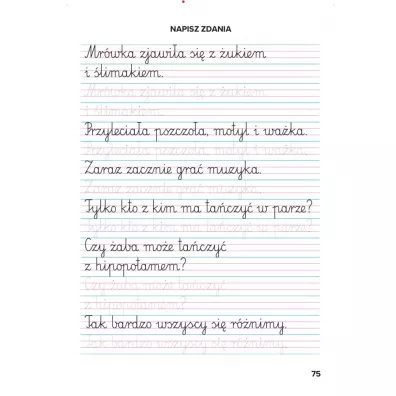 NAPISZ ZDANIA
Mrówka zjawiła się z żukiem
i ślimakiem.
Mrówka zjawiła się z żukiem
i ślimakiem.
Przyleciała pszczoła, motyl i ważka.
Przyleciała pszczoła, motyl i ważka.
Zaraz zacznie grać muzyka.
Zaraz zacznie grać muzyka.
Tylko kto z kim ma tańczyć w parze?
Tylko kto z kim ma tańczyć w parze?
Czy żaba może tańczyć
z hipopotamem?
Czy żaba może tańczyć
z hipopotamem?
Tak bardzo wszyscy się różnimy.
Tak bardzo wszyscy się różnimy.
75